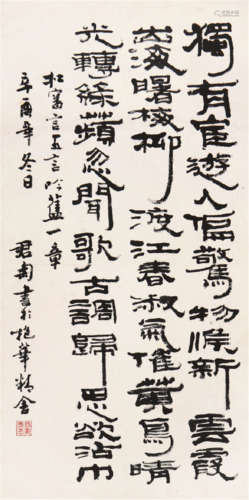 獨有宦遊人偏驚物候新雲霞
出海曙梅柳渡江春淑氣催黃鳥晴
光轉綠蘋忽聞歌古調歸思欲沾巾
杜審言五言吟舊一章
辛酉年冬日
君匋書於抱華精舍